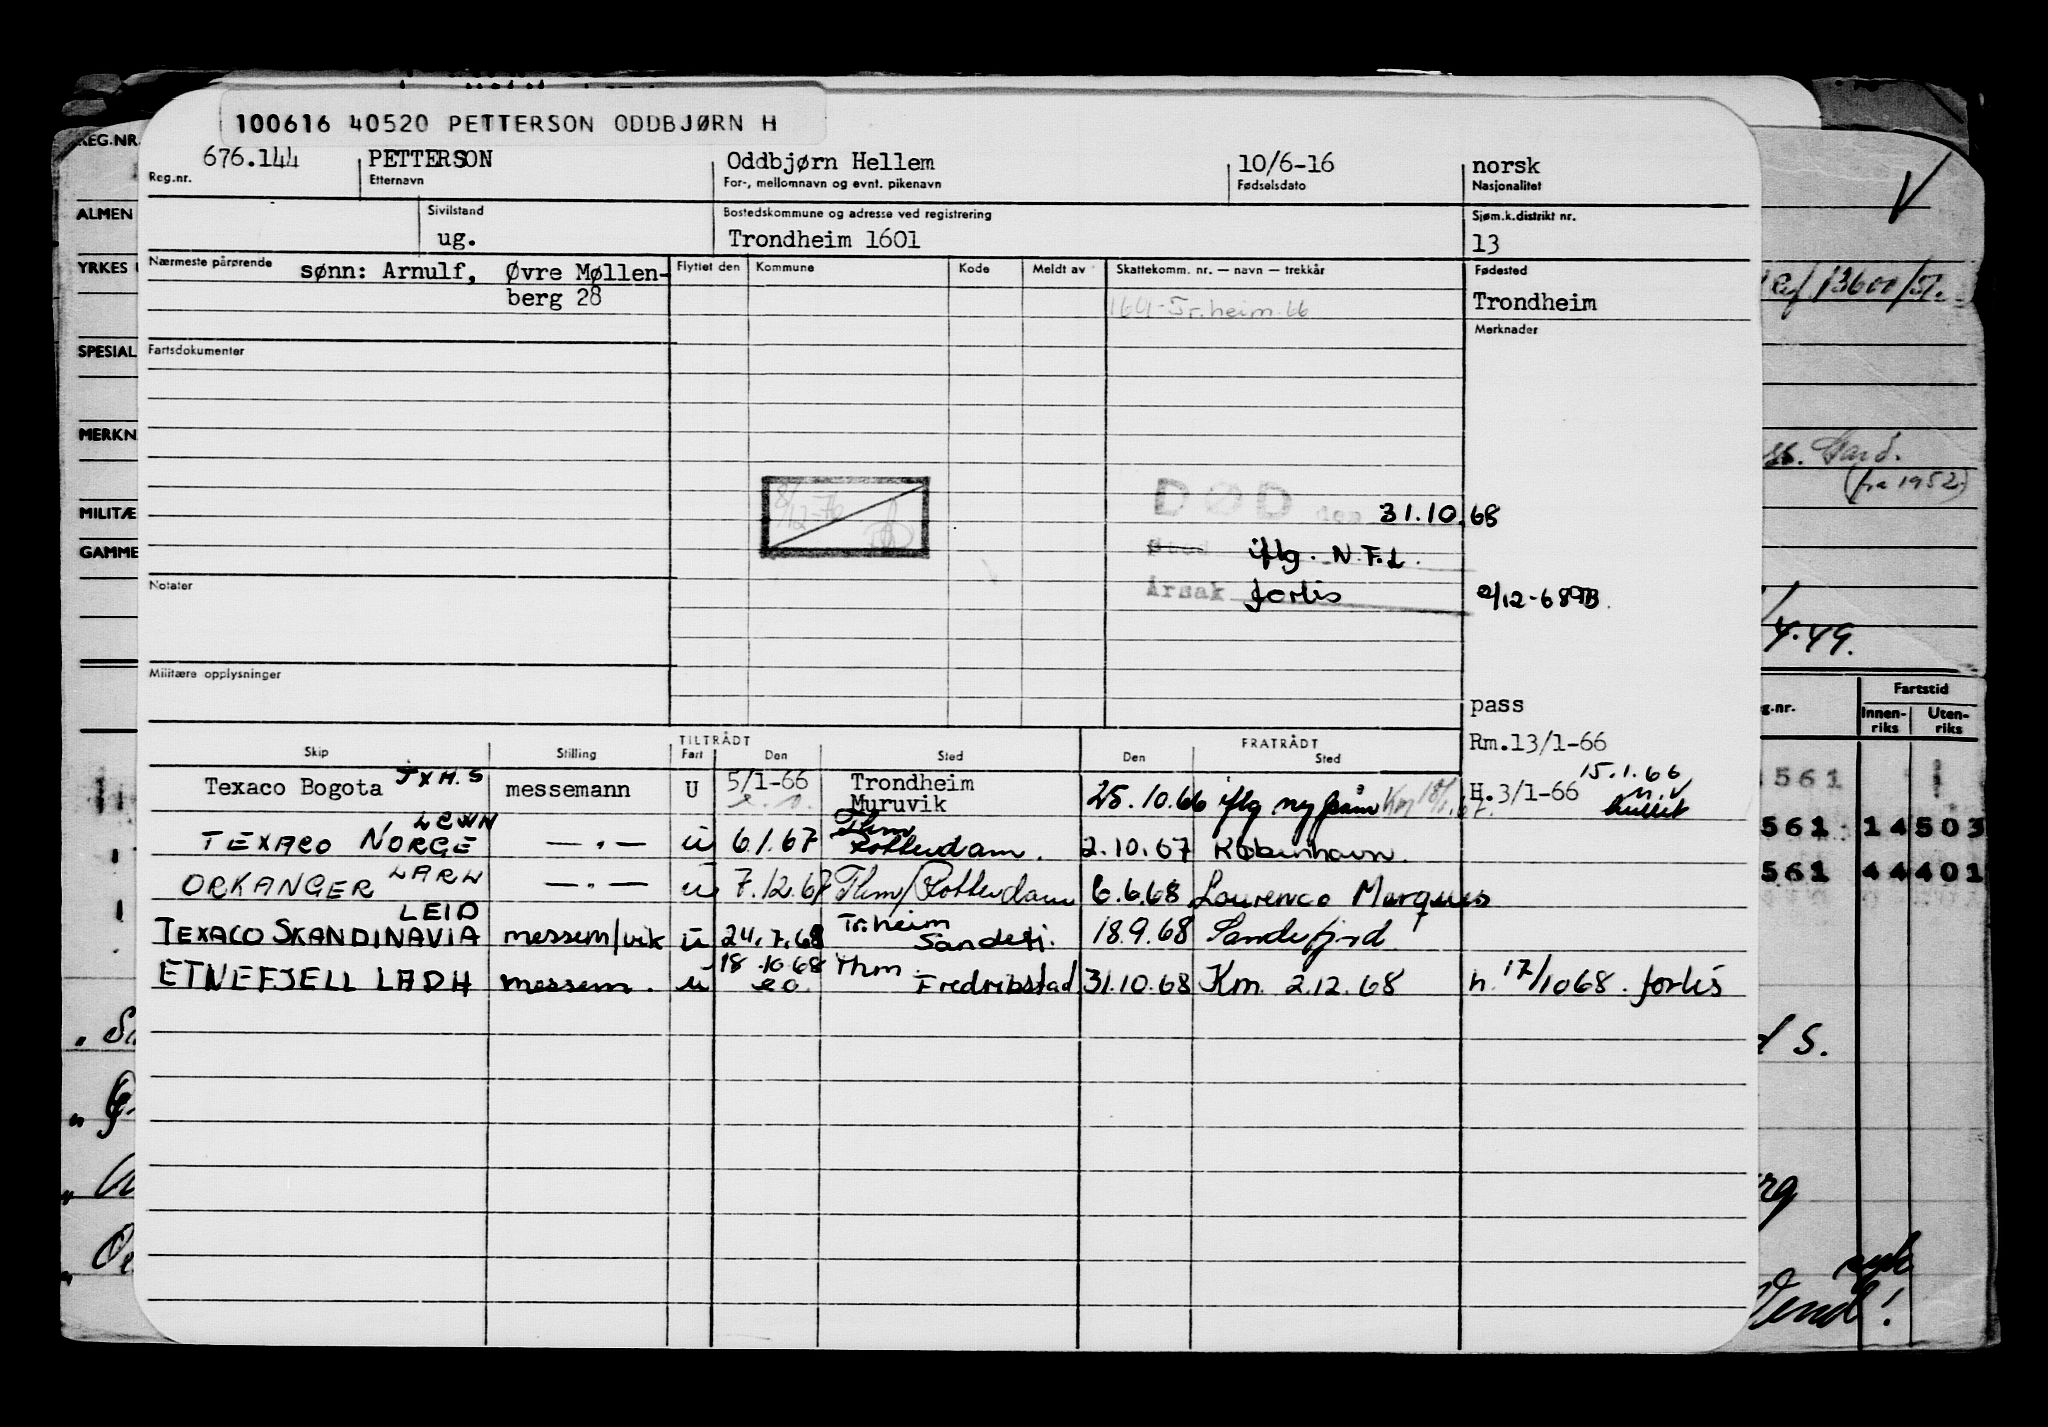 100616 40520 PETTERSON ODDBJØRN H
REG.NR.
676.144 PETTERSON Oddbjørn Hellem 10/6-16 norsk
Reg.nr. Etternavn For-, mellomnavn og evnt. pikenavn Fødselsdato Nasjonalitet
ALMEN Sivilstand Bostedskommune og adresse ved registrering Sjøm.k.distrikt nr.
ug. Trondheim 1601 13
YRKES Nærmeste pårørende sønn: Arnulf, Øvre Møllen- Flyttet den Kommune Kode Meldt av Skattekomm. nr. — navn — trekkår Fødested
berg 28 Trondheim
Merknader
SPESIAL Fartsdokumenter
MERKN.
(fra 1952)
MILITÆ
DØD den 31.10.68
GAMME
Sted iflg. N.F.L.
Notater
Årsak forlis 2/12-68
4.49.
Militære opplysninger
Fartstid
pass
g.nr. Innen-riks Uten-riks
TILTRÅDT FRATRÅDT Rm.13/1-66
Skip Stilling Fart Den Sted Den Sted
Texaco Bogota JXHS messemann U 5/1-66 Trondheim 25.10.66 iflg ny H.3/1-66 15.1.66
561
Muruvik
TEXACO NORGE LCWN —.— u 6.1.67 Thm Rotterdam. 2.10.67 København.
561 14 503
ORKANGER LARW —.— u 7.12.67 Thm/Rotterdam 6.6.68 Lourenco Marques
561 44 401
TEXACO SKANDINAVIA LEID messem/vik u 24.7.68 Tr.heim Sandefj. 18.9.68 Sandefjord
ETNEFJELL LADH messem. u 18.10.68 Thm. Fredrikstad 31.10.68 Km. 2.12.68 h. 17/10 68. forlis
d S.
rg
Vend!